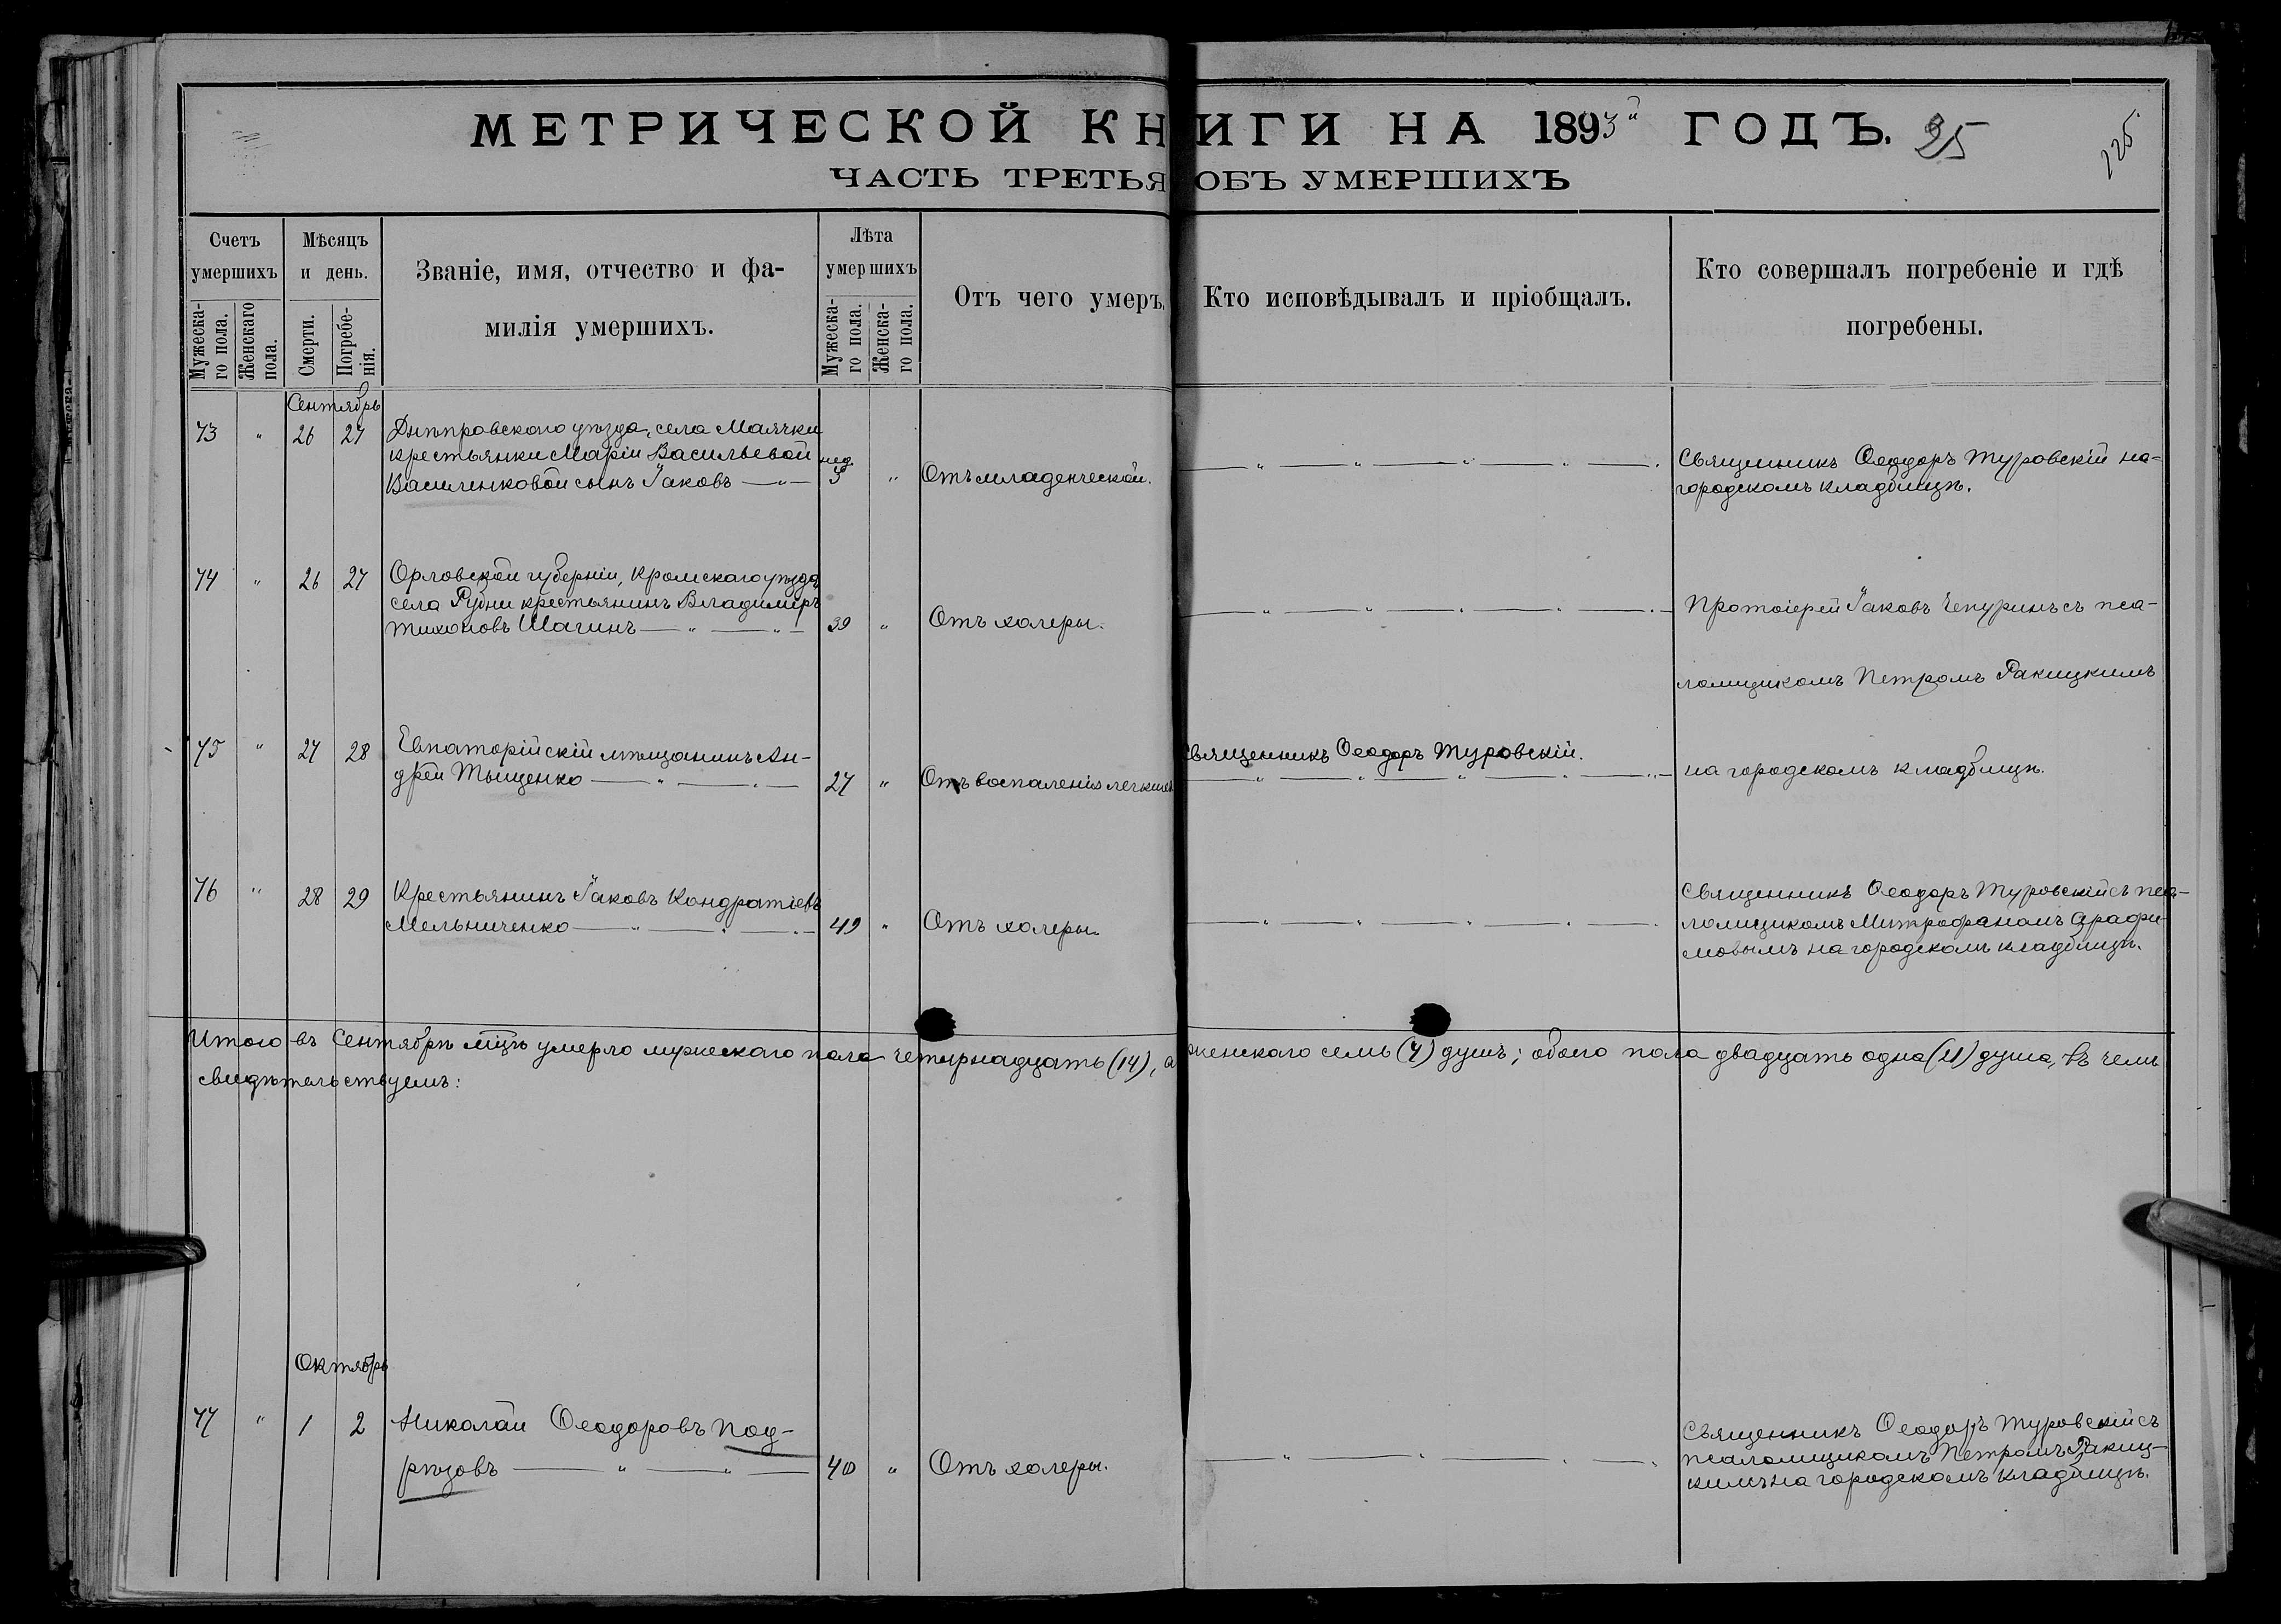 МЕТРИЧЕСКОЙ КНИГИ НА 1893й ГОДЪ. 25
125.
ЧАСТЬ ТРЕТЬЯ ОБЪ УМЕРШИХЪ
Счетъ умершихъ
Мужеска-го пола.
Женскаго пола.
Мѣсяцъ и день.
Смерти.
Погребе-нія.
Званіе, имя, отчество и фа-
милія умершихъ.
Лѣта умершихъ
Мужеска-го пола.
Женска-го пола.
Отъ чего умеръ.
Кто исповѣдывалъ и пріобщалъ.
Кто совершалъ погребеніе и гдѣ
погребены.
Сентябрь
73 " 26 27 Днѣпровского уѣзда, села Маячки
крестьянки Маріи Васильевой
Василенковой сынъ Іаковъ — " —
нед. 3 " Отъ младенческой.
Священникъ Ѳеодоръ Туровскій на-
городскомъ кладбищѣ.
74 " 26 27 Орловской губерніи, Кромскаго уѣзда
села Рубни крестьянинъ Владиміръ
Тихоновъ Шагинъ — " — " —
39 " Отъ холеры.
Протоіерей Іаковъ Чепуринъ съ пса-
ломщикомъ Петромъ Ракицкимъ
на городскомъ кладбищѣ.
75 " 27 28 Евпаторійскій мѣщанинъ Ан-
дрей Тыщенко — " — " —
27 " Отъ воспаленія легкихъ
Священникъ Ѳеодоръ Туровскій.
76 " 28 29 Крестьянинъ Іаковъ Кондратіевъ
Мельниченко — " — " —
49 " Отъ холеры.
Священникъ Ѳеодоръ Туровскій съ пса-
ломщикомъ Митрофаномъ
мовымъ на городскомъ кладбищѣ.
Итого въ Сентябрѣ мцѣ умерло мужескаго пола четырнадцать (14), а женскаго семь (7) душъ; обоего пола двадцать одна (21) душа, въ чемъ
свидѣтельствуемъ:
Октябрь
77 " 1 2 Николай Ѳеодоровъ Под-
рѣзовъ — " — " —
40 " Отъ холеры.
Священникъ Ѳеодоръ Туровскій съ
псаломщикомъ Петромъ Ракиц-
кимъ на городскомъ кладбищѣ.